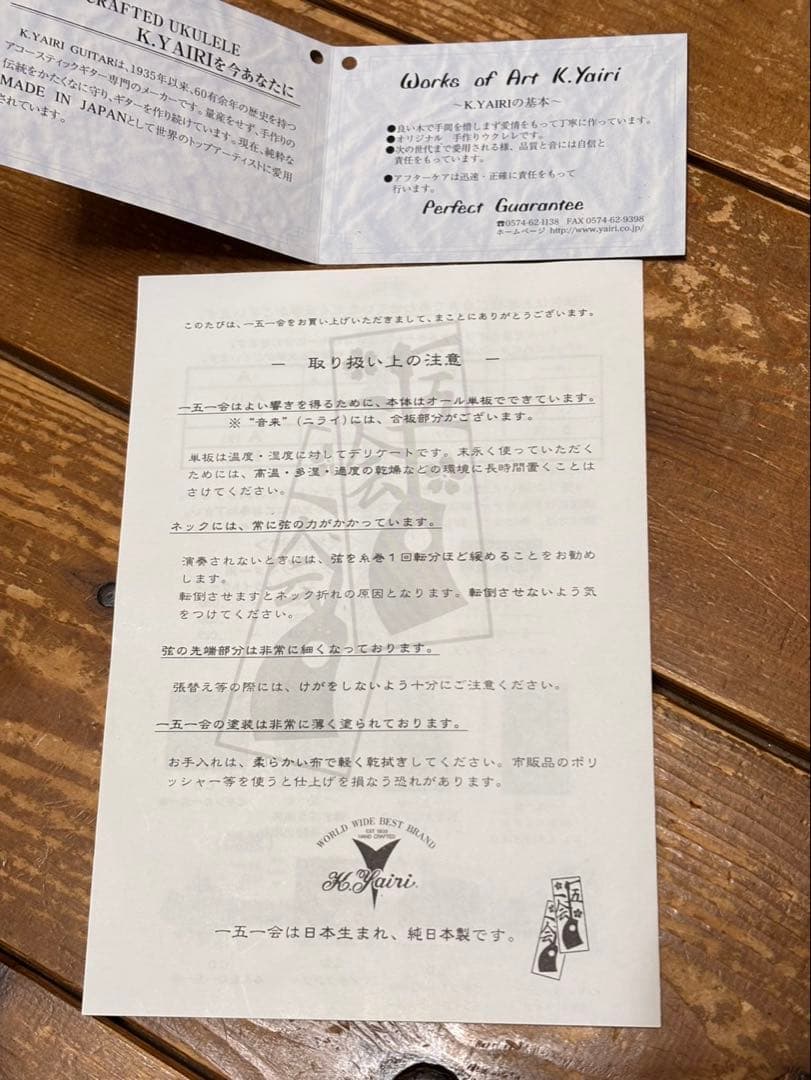 CRAFTED UKULELE
K.YAIRIを今あなたに
K.YAIRI GUITARは、1935年以来、60有余年の歴史を持つ
アコースティックギター専門のメーカーです。量産をせず、手作りの
伝統をかたくなに守り、ギターを作り続けています。現在、純粋な
MADE IN JAPANとして世界のトップアーティストに愛用
されています。
Works of Art K.Yairi
～K.YAIRIの基本～
●良い木で手間を惜しまず愛情をもって丁寧に作っています。
●オリジナル 手作りウクレレです。
●次の世代まで愛用される様、品質と音には自信と
責任をもっています。
●アフターケアは迅速・正確に責任をもって
行います。
Perfect Guarantee
☎0574-62-1138 FAX 0574-62-9398
ホームページ http://www.yairi.co.jp/
このたびは、一五一会をお買い上げいただきまして、まことにありがとうございます。
― 取り扱い上の注意 ―
一五一会はよい響きを得るために、本体はオール単板でできています。
※“音来”(ニライ)には、合板部分がございます。
単板は温度・湿度に対してデリケートです。末永く使っていただく
ためには、高温・多湿・過度の乾燥などの環境に長時間置くことは
さけてください。
ネックには、常に弦の力がかかっています。
演奏されないときには、弦を糸巻1回転分ほど緩めることをお勧め
します。
転倒させますとネック折れの原因となります。転倒させないよう気
をつけてください。
弦の先端部分は非常に細くなっております。
張替え等の際には、けがをしないよう十分にご注意ください。
一五一会の塗装は非常に薄く塗られております。
お手入れは、柔らかい布で軽く乾拭きしてください。市販品のポリ
ッシャー等を使うと仕上げを損なう恐れがあります。
WORLD WIDE BEST BRAND
EST 1935
HAND CRAFTED
K.Yairi
一五一会は日本生まれ、純日本製です。
一五一会
一五一会